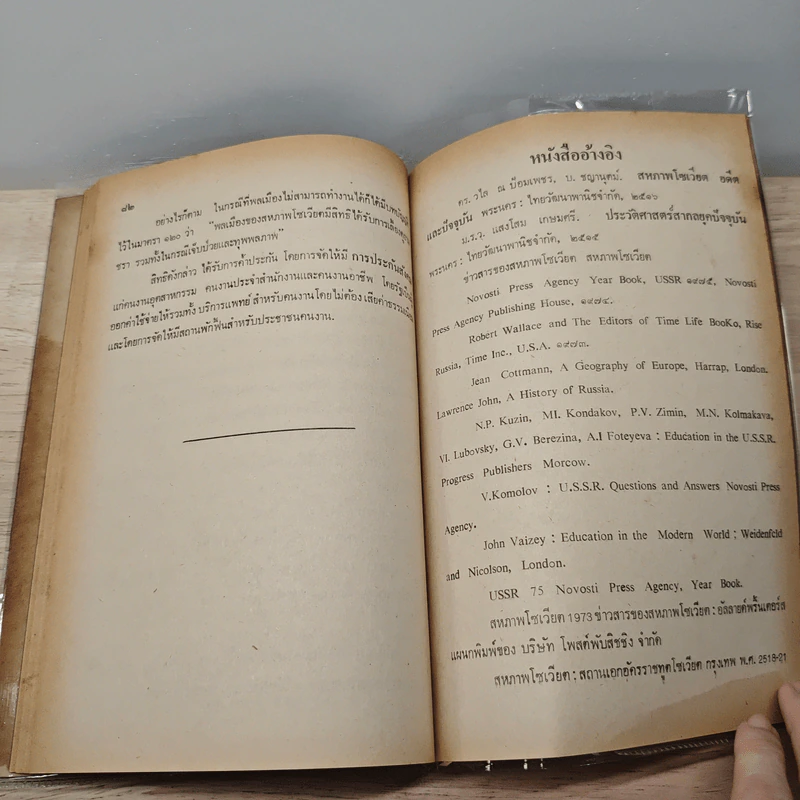 ๘๒
อย่างไรก็ตาม ในกรณีที่พลเมืองไม่สามารถทำงานได้ก็ได้มีบทบัญญัติ
ไว้ในมาตรา ๑๒๐ ว่า "พลเมืองของสหภาพโซเวียตมีสิทธิได้รับการเลี้ยงดูยาม
ชรา รวมทั้งในกรณีเจ็บป่วยและทุพพลภาพ"
สิทธิดังกล่าว ได้รับการค้ำประกัน โดยการจัดให้มี การประกัน
แก่คนงานอุตสาหกรรม คนงานประจำสำนักงานและคนงานอาชีพ โดยรัฐเป็นผู้
ออกค่าใช้จ่ายให้รวมทั้ง บริการแพทย์ สำหรับคนงานโดยไม่ต้อง เสียค่าธรรมเนียม
และโดยการจัดให้มีสถานพักฟื้นสำหรับประชาชนคนงาน.
หนังสืออ้างอิง
ดร. วิไล ณ ป้อมเพชร, บ. ชญานุตม์. สหภาพโซเวียต อดีต
และปัจจุบัน พระนคร : ไทยวัฒนาพานิชจำกัด, ๒๕๑๐
ม.ร.ว. แสงโสม เกษมศรี. ประวัติศาสตร์สากลยุคปัจจุบัน
พระนคร : ไทยวัฒนาพานิชจำกัด, ๒๕๑๕
ข่าวสารของสหภาพโซเวียต สหภาพโซเวียต
Novosti Press Agency Year Book, USSR ๑๙๗๕, Novosti
Press Agency Publishing House, ๑๙๗๔.
Robert Wallace and The Editors of Time Life BooKo, Rise
Russia, Time Inc., U.S.A. ๑๙๗๓.
Jean Cottmann, A Geography of Europe, Harrap, London.
Lawrence John, A History of Russia.
N.P. Kuzin, MI. Kondakov, P.V. Zimin, M.N. Kolmakava,
VI. Lubovsky, G.V. Berezina, A.I Foteyeva : Education in the U.S.S.R.
Progress Publishers Morcow.
V.Komolov : U.S.S.R. Questions and Answers Novosti Press
Agency.
John Vaizey : Education in the Modern World : Weidenfeld
and Nicolson, London.
USSR 75 Novosti Press Agency, Year Book.
สหภาพโซเวียต 1973 ข่าวสารของสหภาพโซเวียต : อัลลายด์พริ้นเตอร์ส
แผนกพิมพ์ของ บริษัท โพสต์พับลิชชิง จำกัด
สหภาพโซเวียต : สถานเอกอัครราชทูตโซเวียต กรุงเทพ พ.ศ. 2518-21